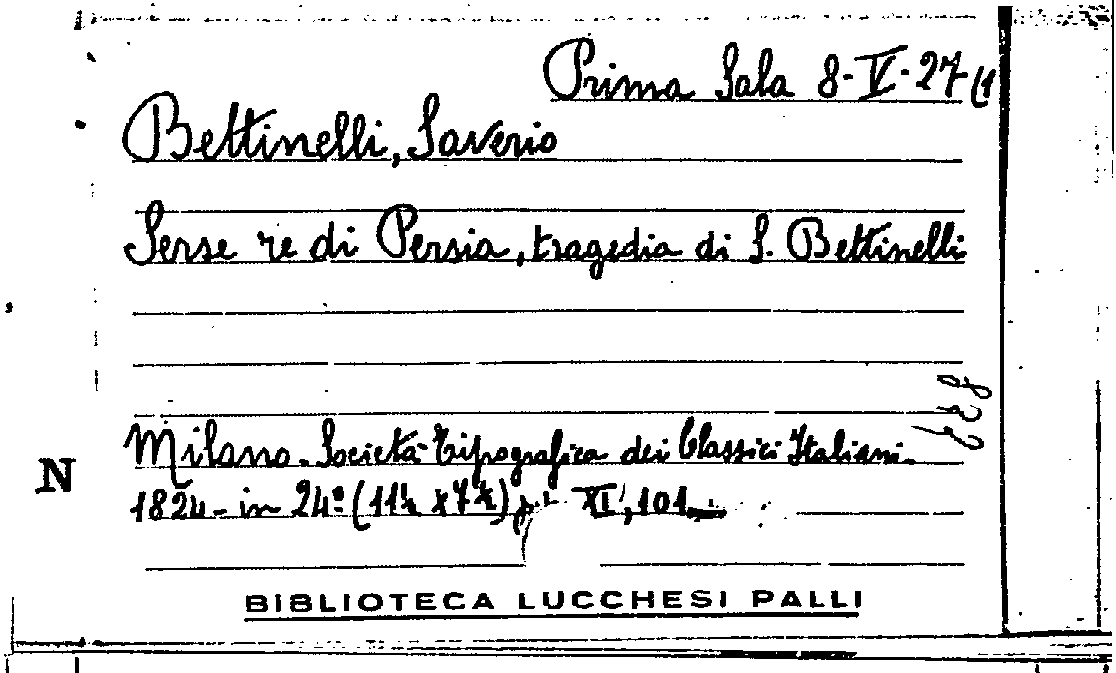 Prima Sala 8-V-27 (1
Bettinelli, Saverio
Serse re di Persia, tragedia di S. Bettinelli
Milano. Società Tipografica dei Classici Italiani.
N
1824 - in 24º (11½ x 7½) XI, 101
BIBLIOTECA LUCCHESI PALLI